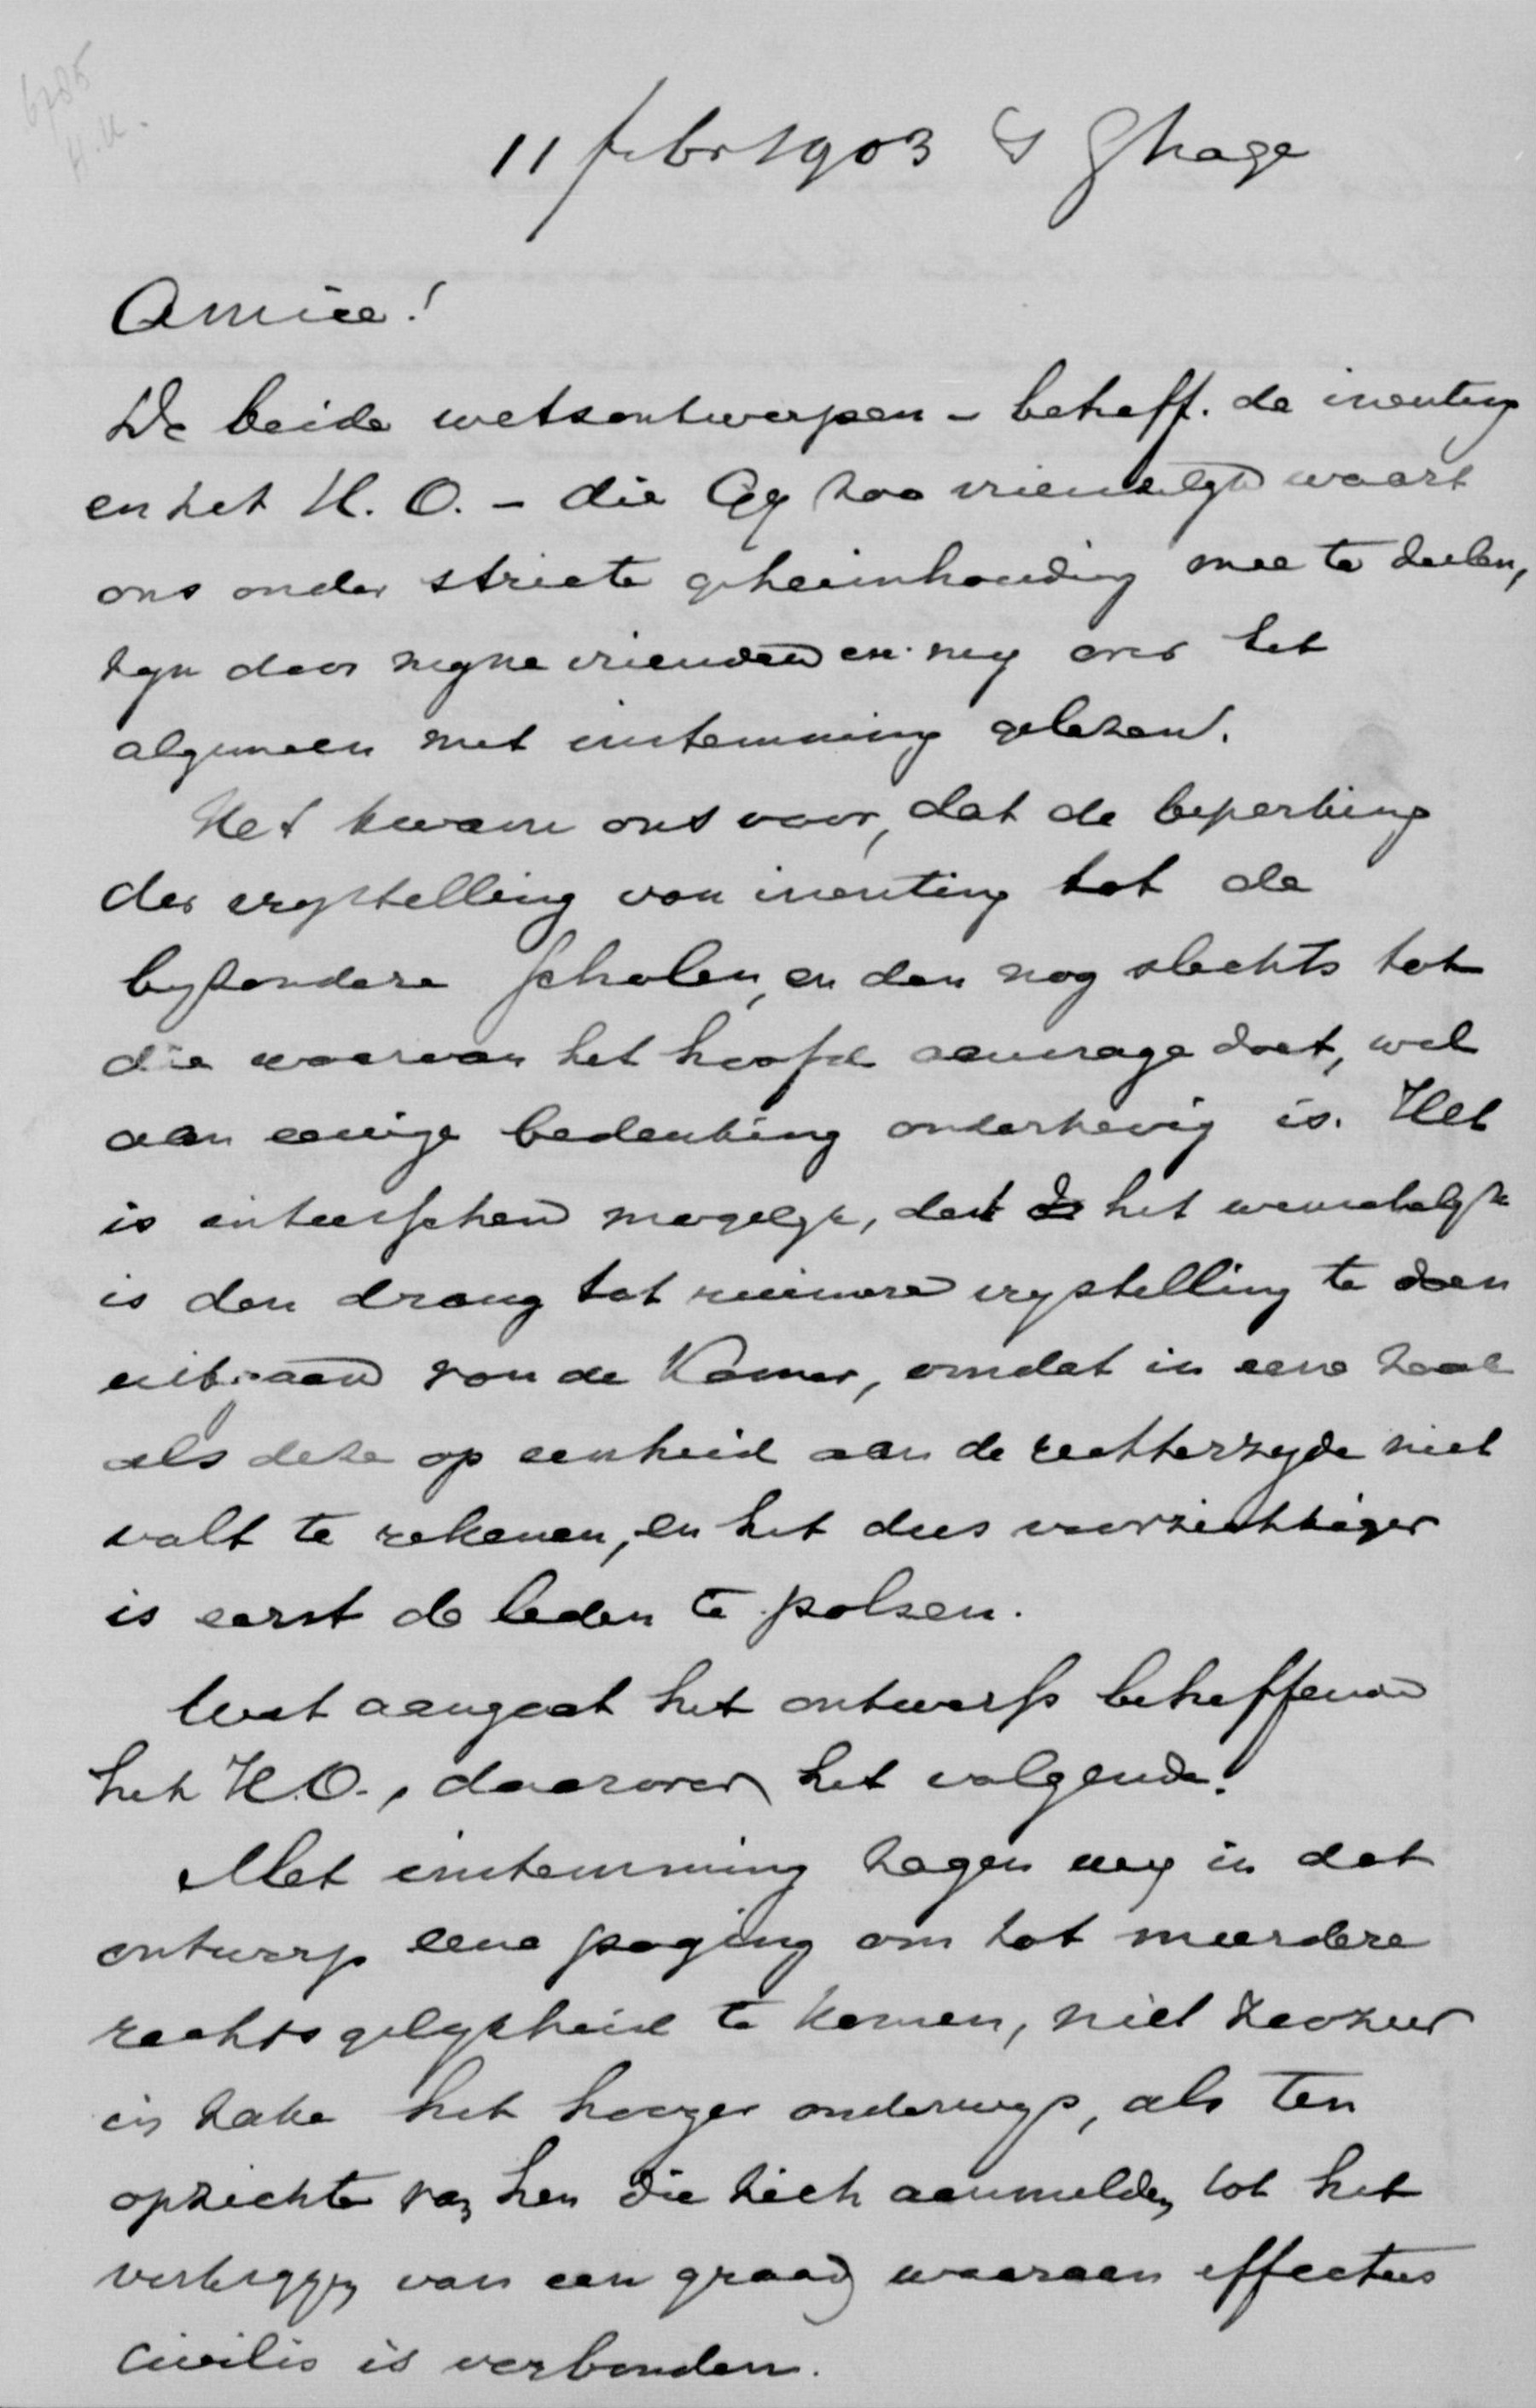 6785
H.K.
11 febr 1903 's Ghage
Amice!
De beide wetsontwerpen - betreff. de inenting
en het H. O. - die Gij zoo vriendelijk waart
ons onder stricte geheimhouding mee te deelen,
zijn door mijne vrienden en mij over het
algemeen met instemming gelezen.
Het kwam ons voor, dat de beperking
der vrijstelling van inenting tot de
bijzondere scholen, en dan nog slechts tot
die waarvan het hoofd aanvrage doet, wel
aan eenige bedenking onderhevig is. Het
is intusschen mogelijk, dat het wenschelijk
is den drang tot ruimere vrijstelling te doen
uitgaan van de Kamer, omdat in eene zaak
als deze op eenheid aan de rechterzijde niet
valt te rekenen, en het dus voorzichtiger
is eerst de leden te polsen.
Wat aangaat het ontwerp betreffende
het H.O., daarover het volgende.
Met instemming zagen wij in dat
ontwerp eene poging om tot meerdere
rechtsgelijkheid te komen, niet zoozeer
in zake het hooger onderwijs, als ten
opzichte van hen die zich aanmelden tot het
verkrijgen van een graad waaraan effectus
civilis is verbonden.